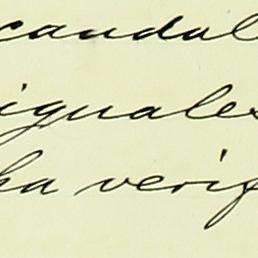 caudal
iguales
ha verif